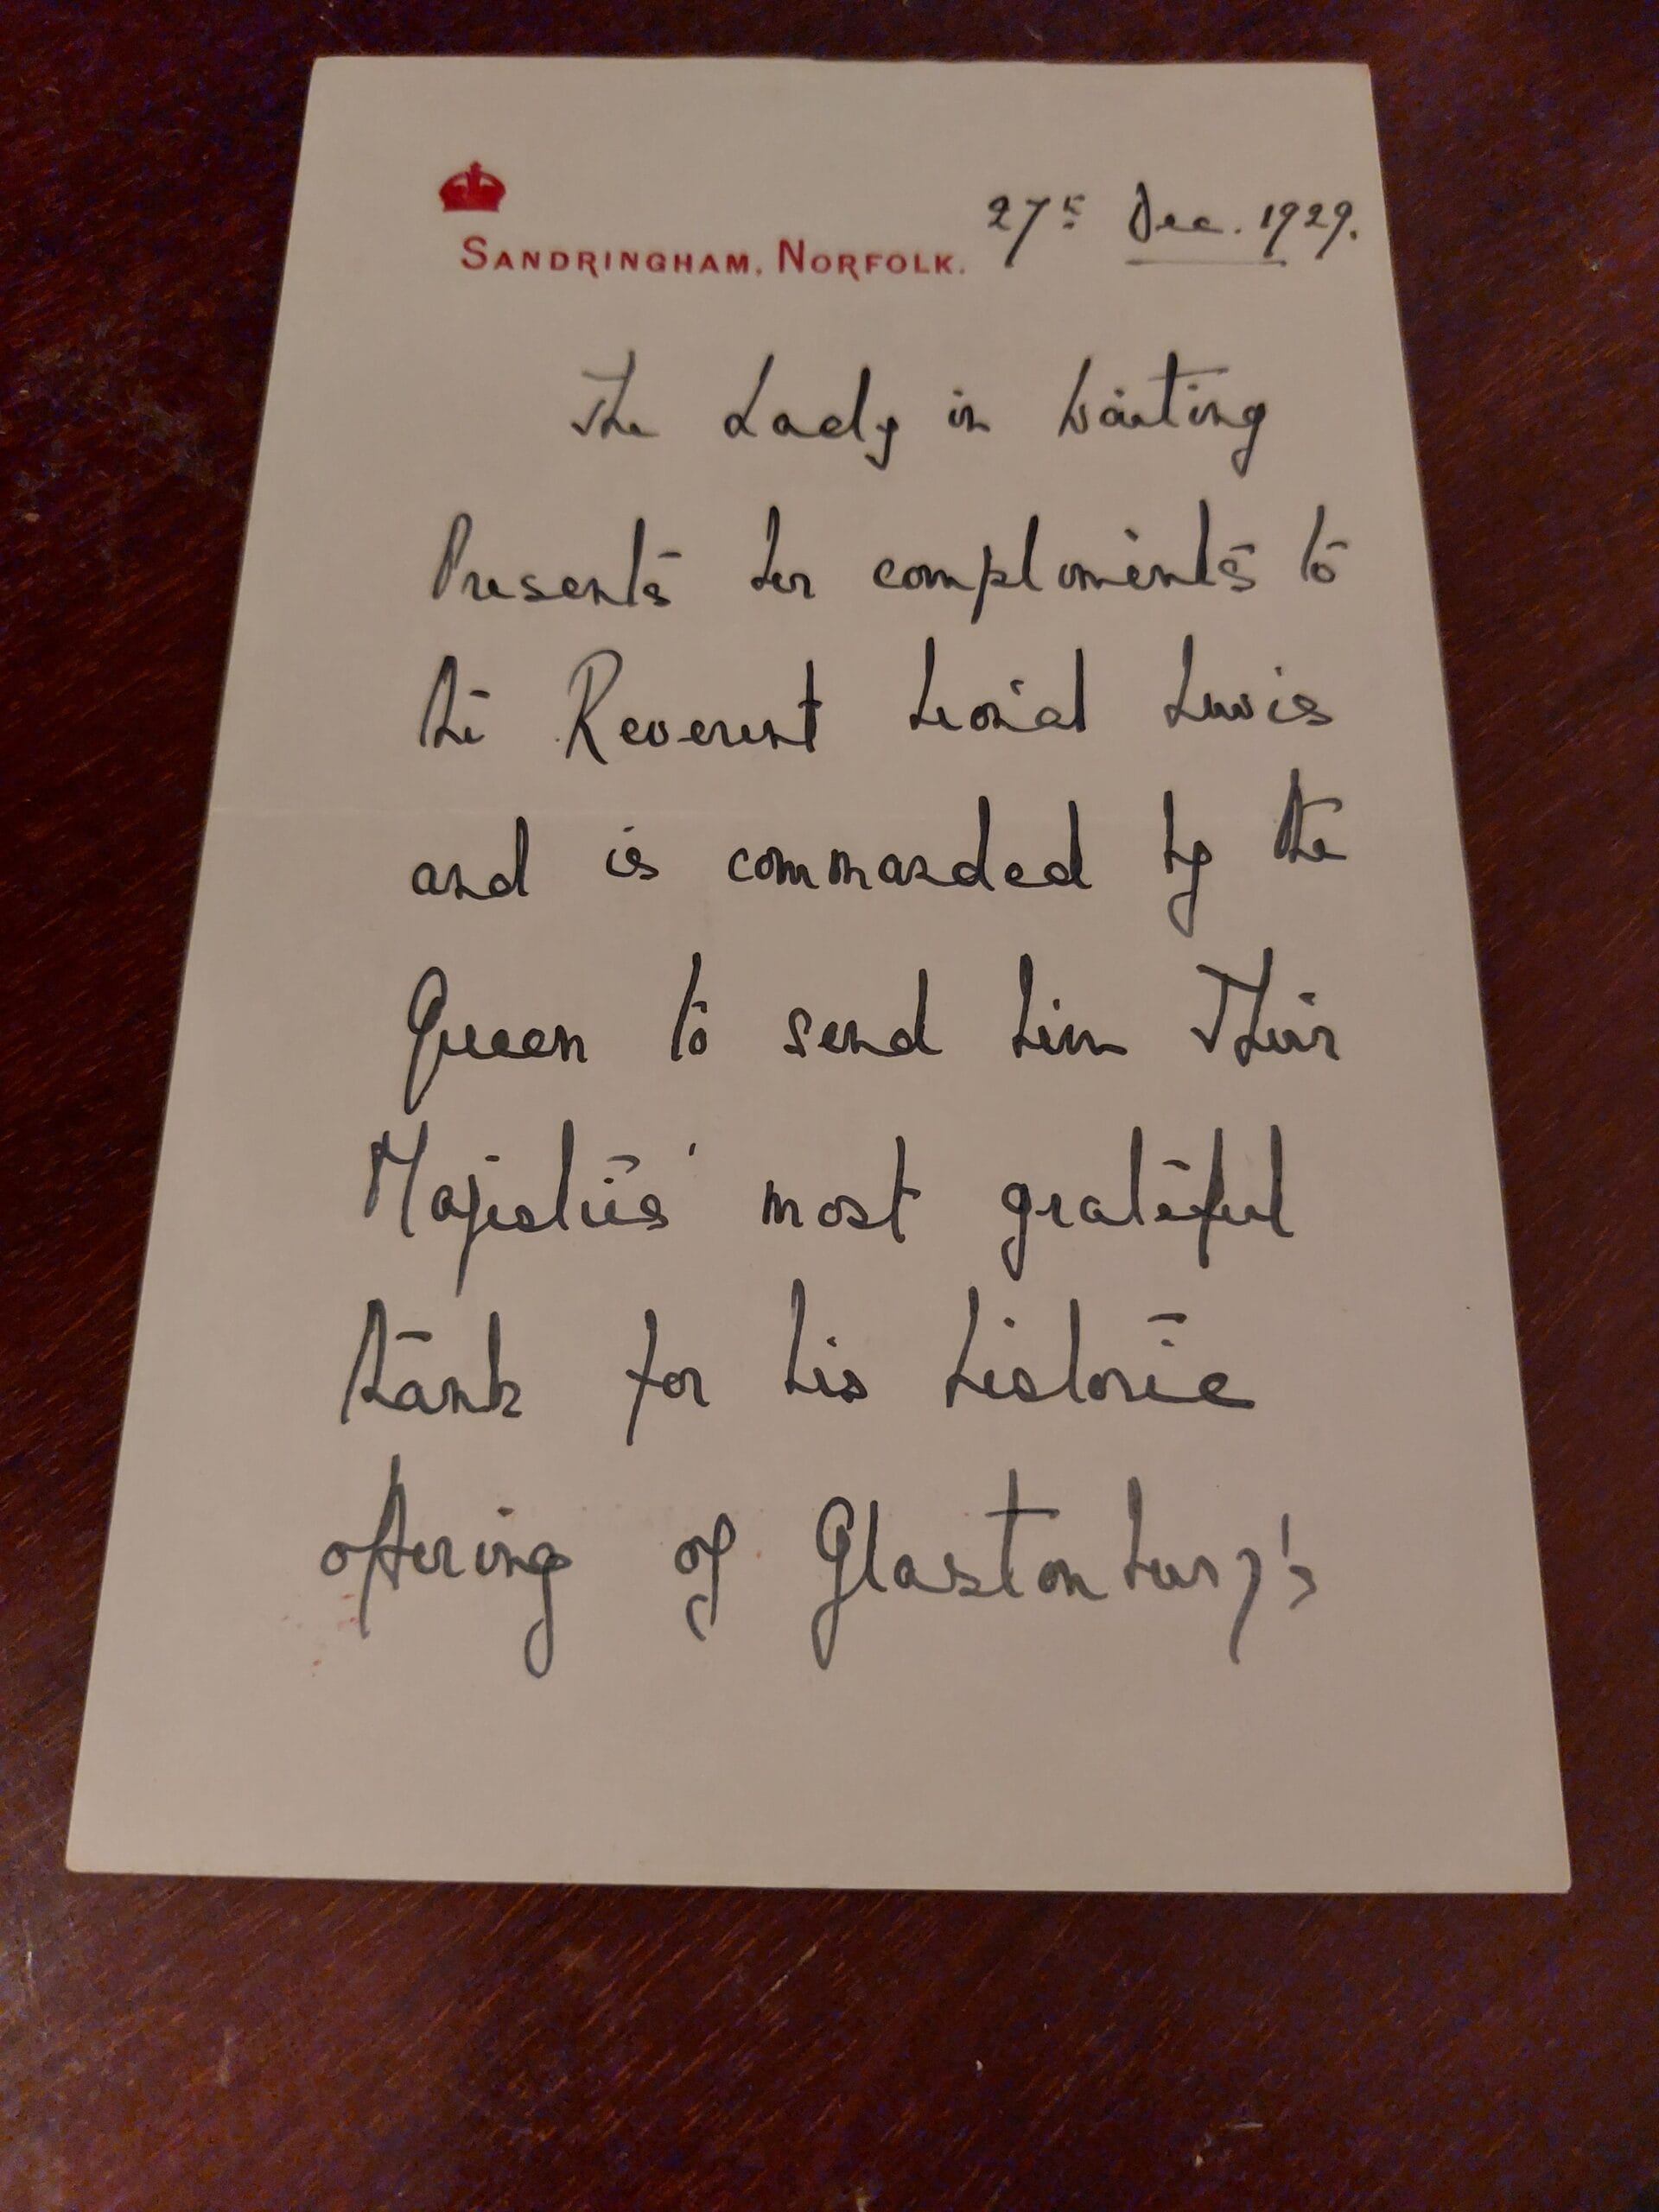 SANDRINGHAM, NORFOLK. 27th Dec. 1929.
The Lady in Waiting
Presents her compliments to
the Reverent Lional Lewis
and is commanded by the
Queen to send him Their
Majesties' most grateful
thank for his historic
offering of Glastonbury's